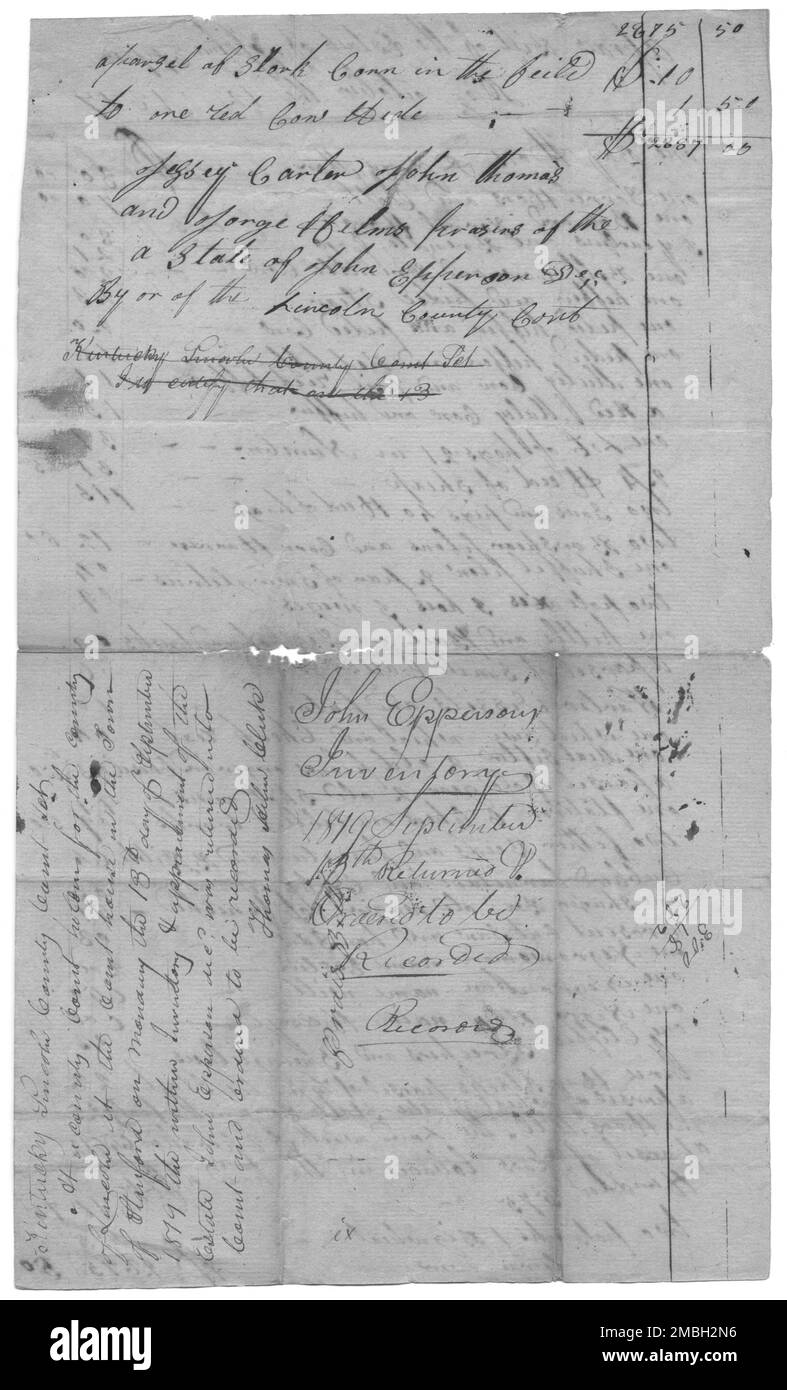 2875 | 50
a parsel of Stork Corn in the feild $ 10
to one red Cow Hide - - - 1 | 50
$ 2887 | 00
Jessey Carter John Thomas
and Jorge Helms prasirs of the
a State of John Epperson Dec.
By or of the Lincoln County Cort
Kentucky Lincoln County Court Sct
I do certify that on the 13
Kentucky Lincoln County Court Sct
At a county Court holden for the County
of Lincoln at the Court house in the Town
of Stanford on monday the 13th day of September
1819 the within Inventory & appraisement of the
Estate John Epperson decd was returned into
Court and ordered to be recorded
Thomas Helm Clerk
John Eppersons
Inventory
1819 September
13th Returned &
Ordered to be
Recorded
Recorded
ix
alamy
Image ID: 2MBH2N6
www.alamy.com